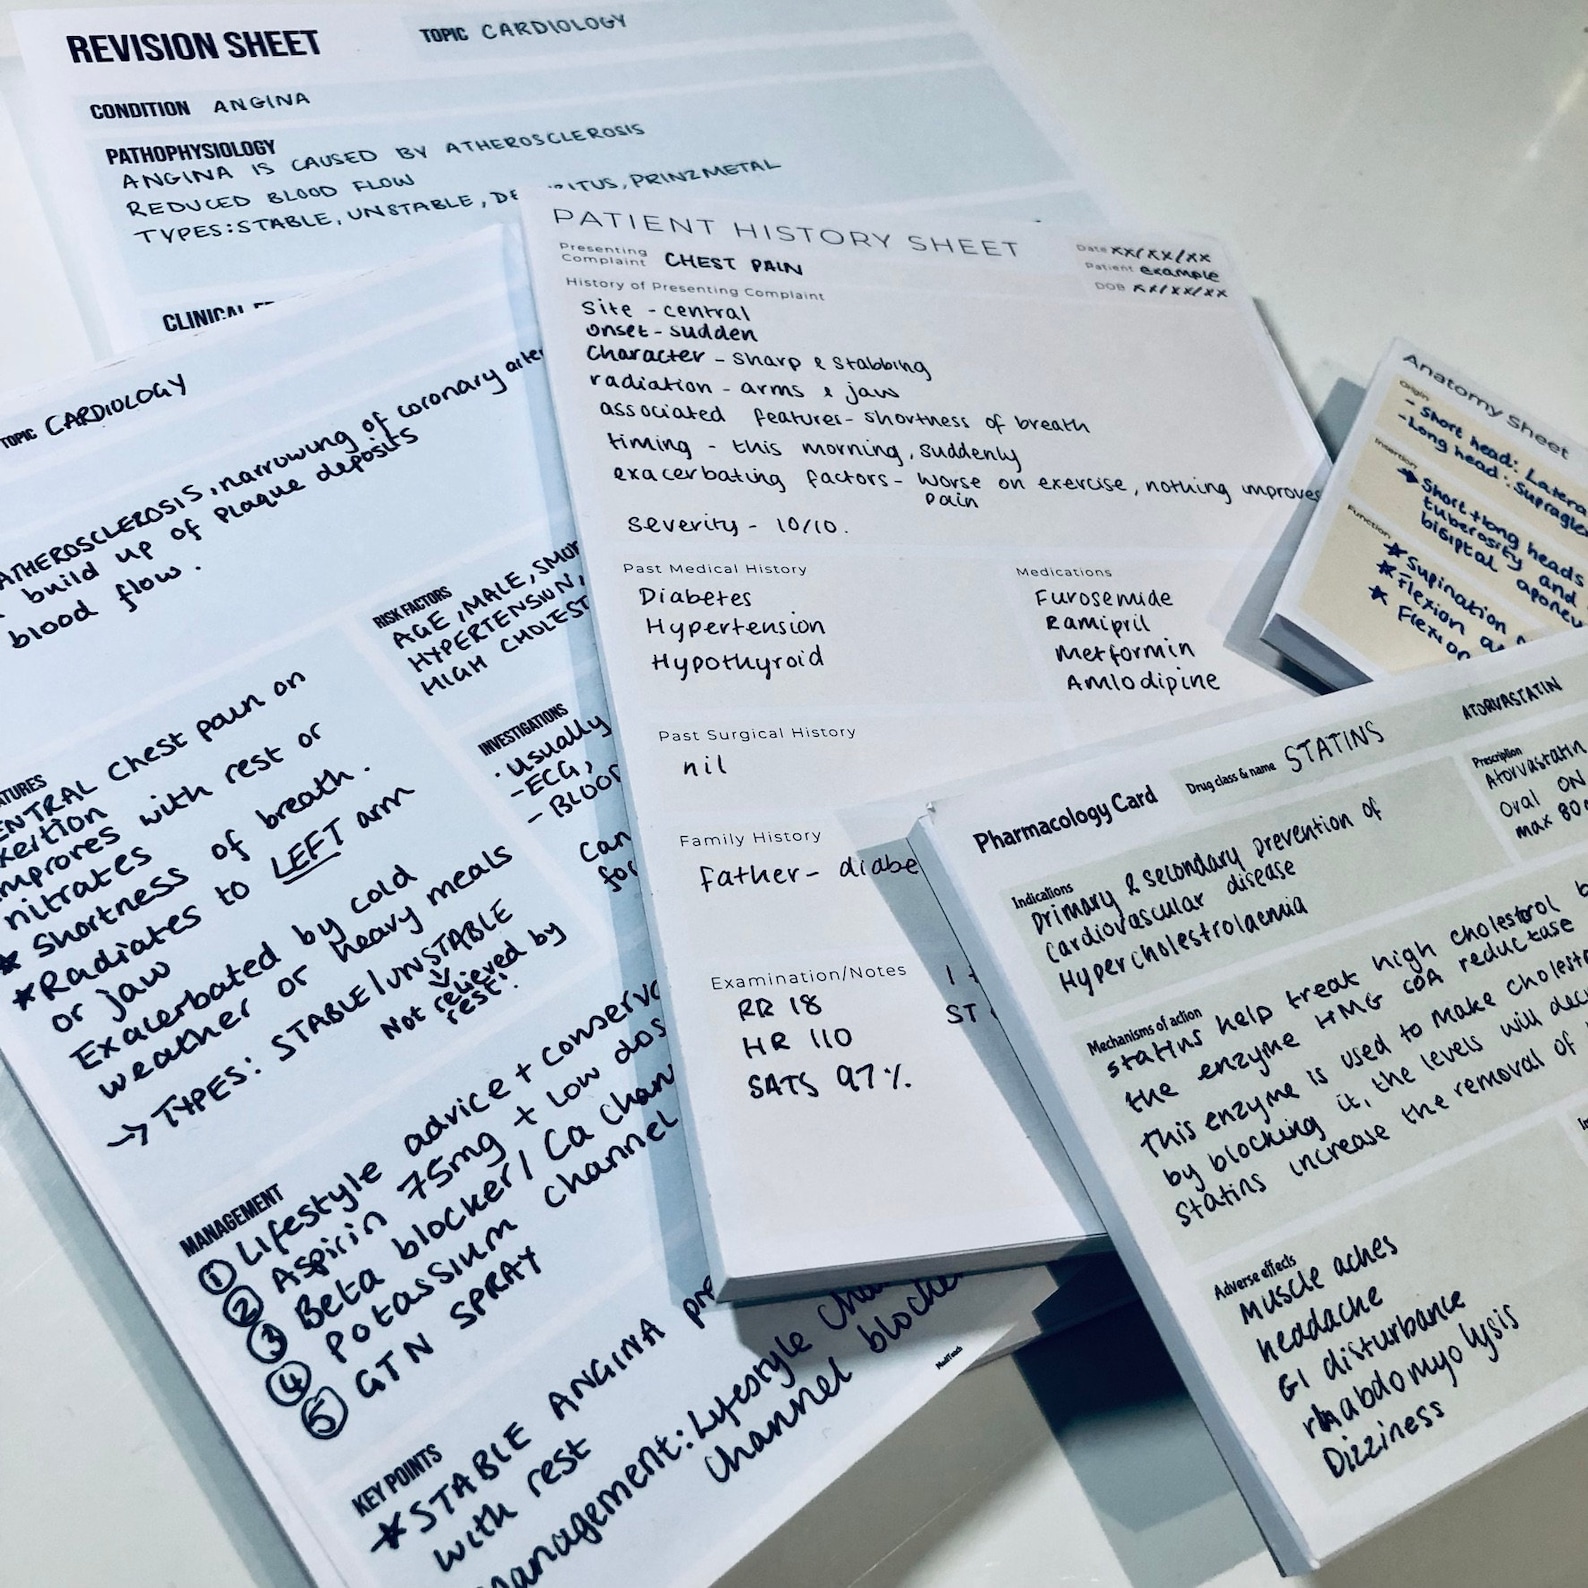 REVISION SHEET
TOPIC CARDIOLOGY
CONDITION ANGINA
PATHOPHYSIOLOGY
ANGINA IS CAUSED BY ATHEROSCLEROSIS
REDUCED BLOOD FLOW
TYPES: STABLE, UNSTABLE, PRINZMETAL
TOPIC CARDIOLOGY
ATHEROSCLEROSIS, narrowing of coronary
build up of plaque deposits
blood flow.
RISK FACTORS
AGE, MALE,
HYPERTENSION,
HIGH
INVESTIGATIONS
· Usually
- ECG,
-
chest pain on
improves with rest or
nitrates
* Shortness of breath.
* Radiates to LEFT arm
or jaw
Exacerbated by cold
weather or heavy meals
→ TYPES: STABLE/UNSTABLE
Not relieved by
rest!
MANAGEMENT
① Lifestyle advice +
② Aspirin 75mg + low
③ Beta blocker / Ca
④ Potassium channel
⑤ GTN SPRAY
KEY POINTS
* STABLE ANGINA
with rest
management: Lifestyle
channel
MedTeach
PATIENT HISTORY SHEET
Date xx/xx/xx
Patient example
DOB xx/xx/xx
Presenting
Complaint CHEST PAIN
History of Presenting Complaint
Site - central
onset - sudden
Character - sharp & stabbing
radiation - arms & jaw
associated features - shortness of breath
timing - this morning, suddenly
exacerbating factors - worse on exercise, nothing improves
pain
severity - 10/10.
Past Medical History
Diabetes
Hypertension
Hypothyroid
Medications
Furosemide
Ramipril
Metformin
Amlodipine
Past Surgical History
nil
Family History
Father -
Examination/Notes
RR 18
HR 110
SATS 97%.
ST
Anatomy Sheet
Origin
- Short head:
- Long head:
Insertion
* Short + long heads
tuberosity and
bisiptal
Function
* Supination
* Flexion
* Flexion
Pharmacology Card
Drug class & name STATINS
ATORVASTATIN
Prescription
Atorvastatin
Oral ON
max
Indications
Primary & secondary prevention of
cardiovascular disease
Hypercholestrolaemia
Mechanisms of action
Statins help treat high cholestrol
the enzyme HMG COA reductase
This enzyme is used to make
by blocking it, the levels will
Statins increase the removal of
Adverse effects
Muscle aches
headache
GI disturbance
rhabdomyolysis
Dizziness